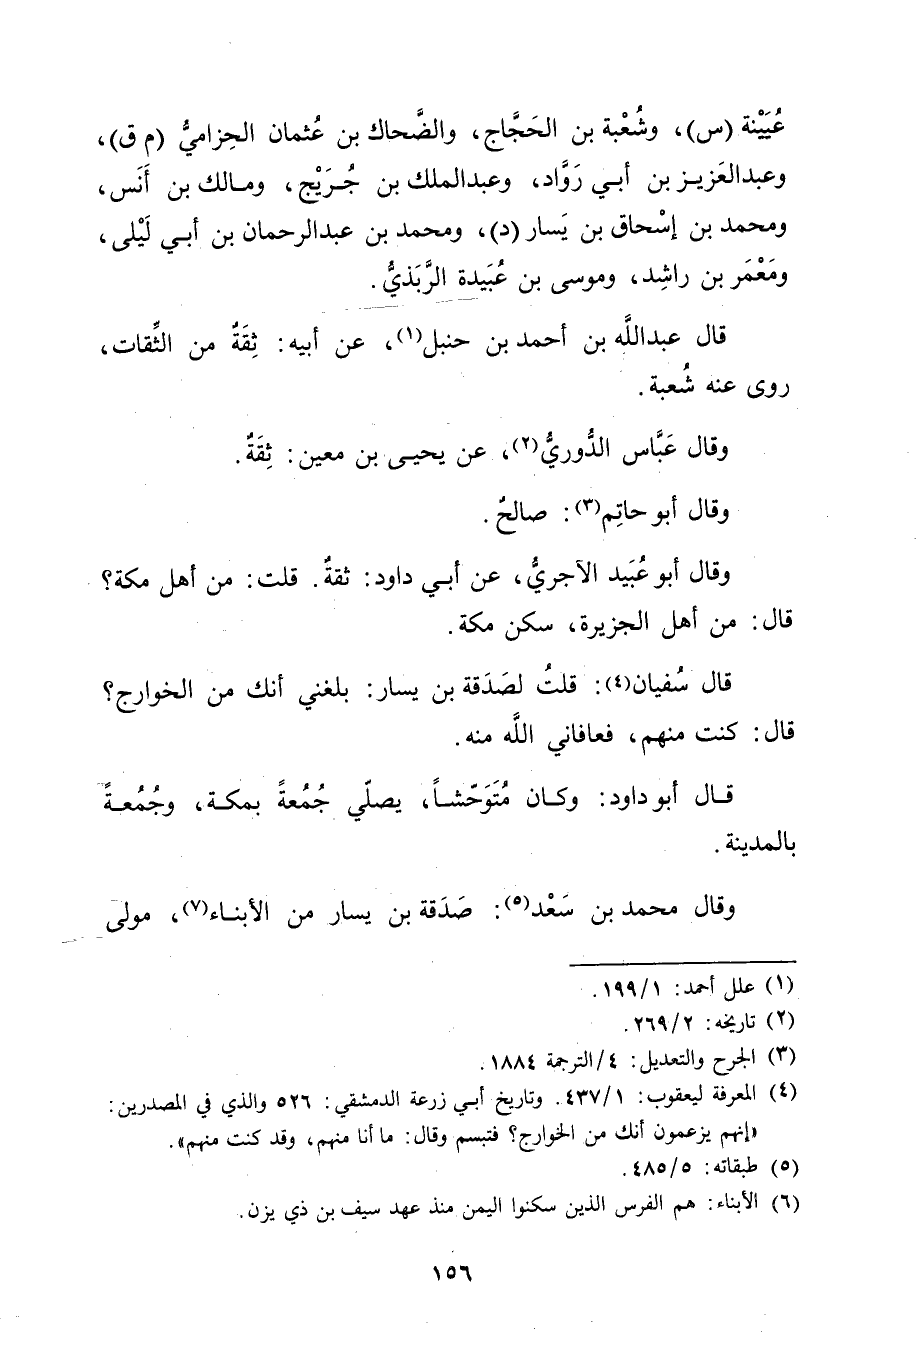 عُيَيْنة (س)، وشُعْبة بن الحَجَّاج، والضَّحاك بن عُثمان الحِزاميُّ (م ق)،
وعبدالعَزيـز بن أبـي رَوَّاد، وعبدالملك بن جُـرَيْج، ومـالك بن أَنَس،
ومحمد بن إسْحاق بن يَسار (د)، ومحمد بن عبدالرحمان بن أبـي لَيْلى،
ومَعْمَر بن راشِد، وموسى بن عُبَيدة الرَّبَذيُّ.
قال عبداللَّه بن أحمد بن حنبل(١)، عن أبيه: ثِقَةٌ من الثِّقات،
روى عنه شُعبة.
وقال عَبَّاس الدُّوريُّ(٢)، عن يحيـى بن معين: ثِقَةٌ.
وقال أبو حاتِم(٣): صالحٌ.
وقال أبو عُبَيد الآجريُّ، عن أبـي داود: ثقةٌ. قلت: من أهل مكة؟
قال: من أهل الجزيرة، سكن مكة.
قال سُفيان(٤): قلتُ لصَدَقة بن يسار: بلغني أنك من الخوارج؟
قال: كنت منهم، فعافاني اللَّه منه.
قـال أبو داود: وكـان مُتَوَحّشـاً، يصلّي جُمُعةً بمكـة، وجُمُعـةً
بالمدينة.
وقال محمد بن سَعْد(٥): صَدَقة بن يسار من الأبنـاء(٧)، مولى
(١) علل أحمد: ١/١٩٩.
(٢) تاريخه: ٢/٢٦٩.
(٣) الجرح والتعديل: ٤/الترجمة ١٨٨٤.
(٤) المعرفة ليعقوب: ١/٤٣٧. وتاريخ أبـي زرعة الدمشقي: ٥٢٦ والذي في المصدرين:
«إنهم يزعمون أنك من الخوارج؟ فتبسم وقال: ما أنا منهم، وقد كنت منهم».
(٥) طبقاته: ٥/٤٨٥.
(٦) الأبناء: هم الفرس الذين سكنوا اليمن منذ عهد سيف بن ذي يزن.
١٥٦